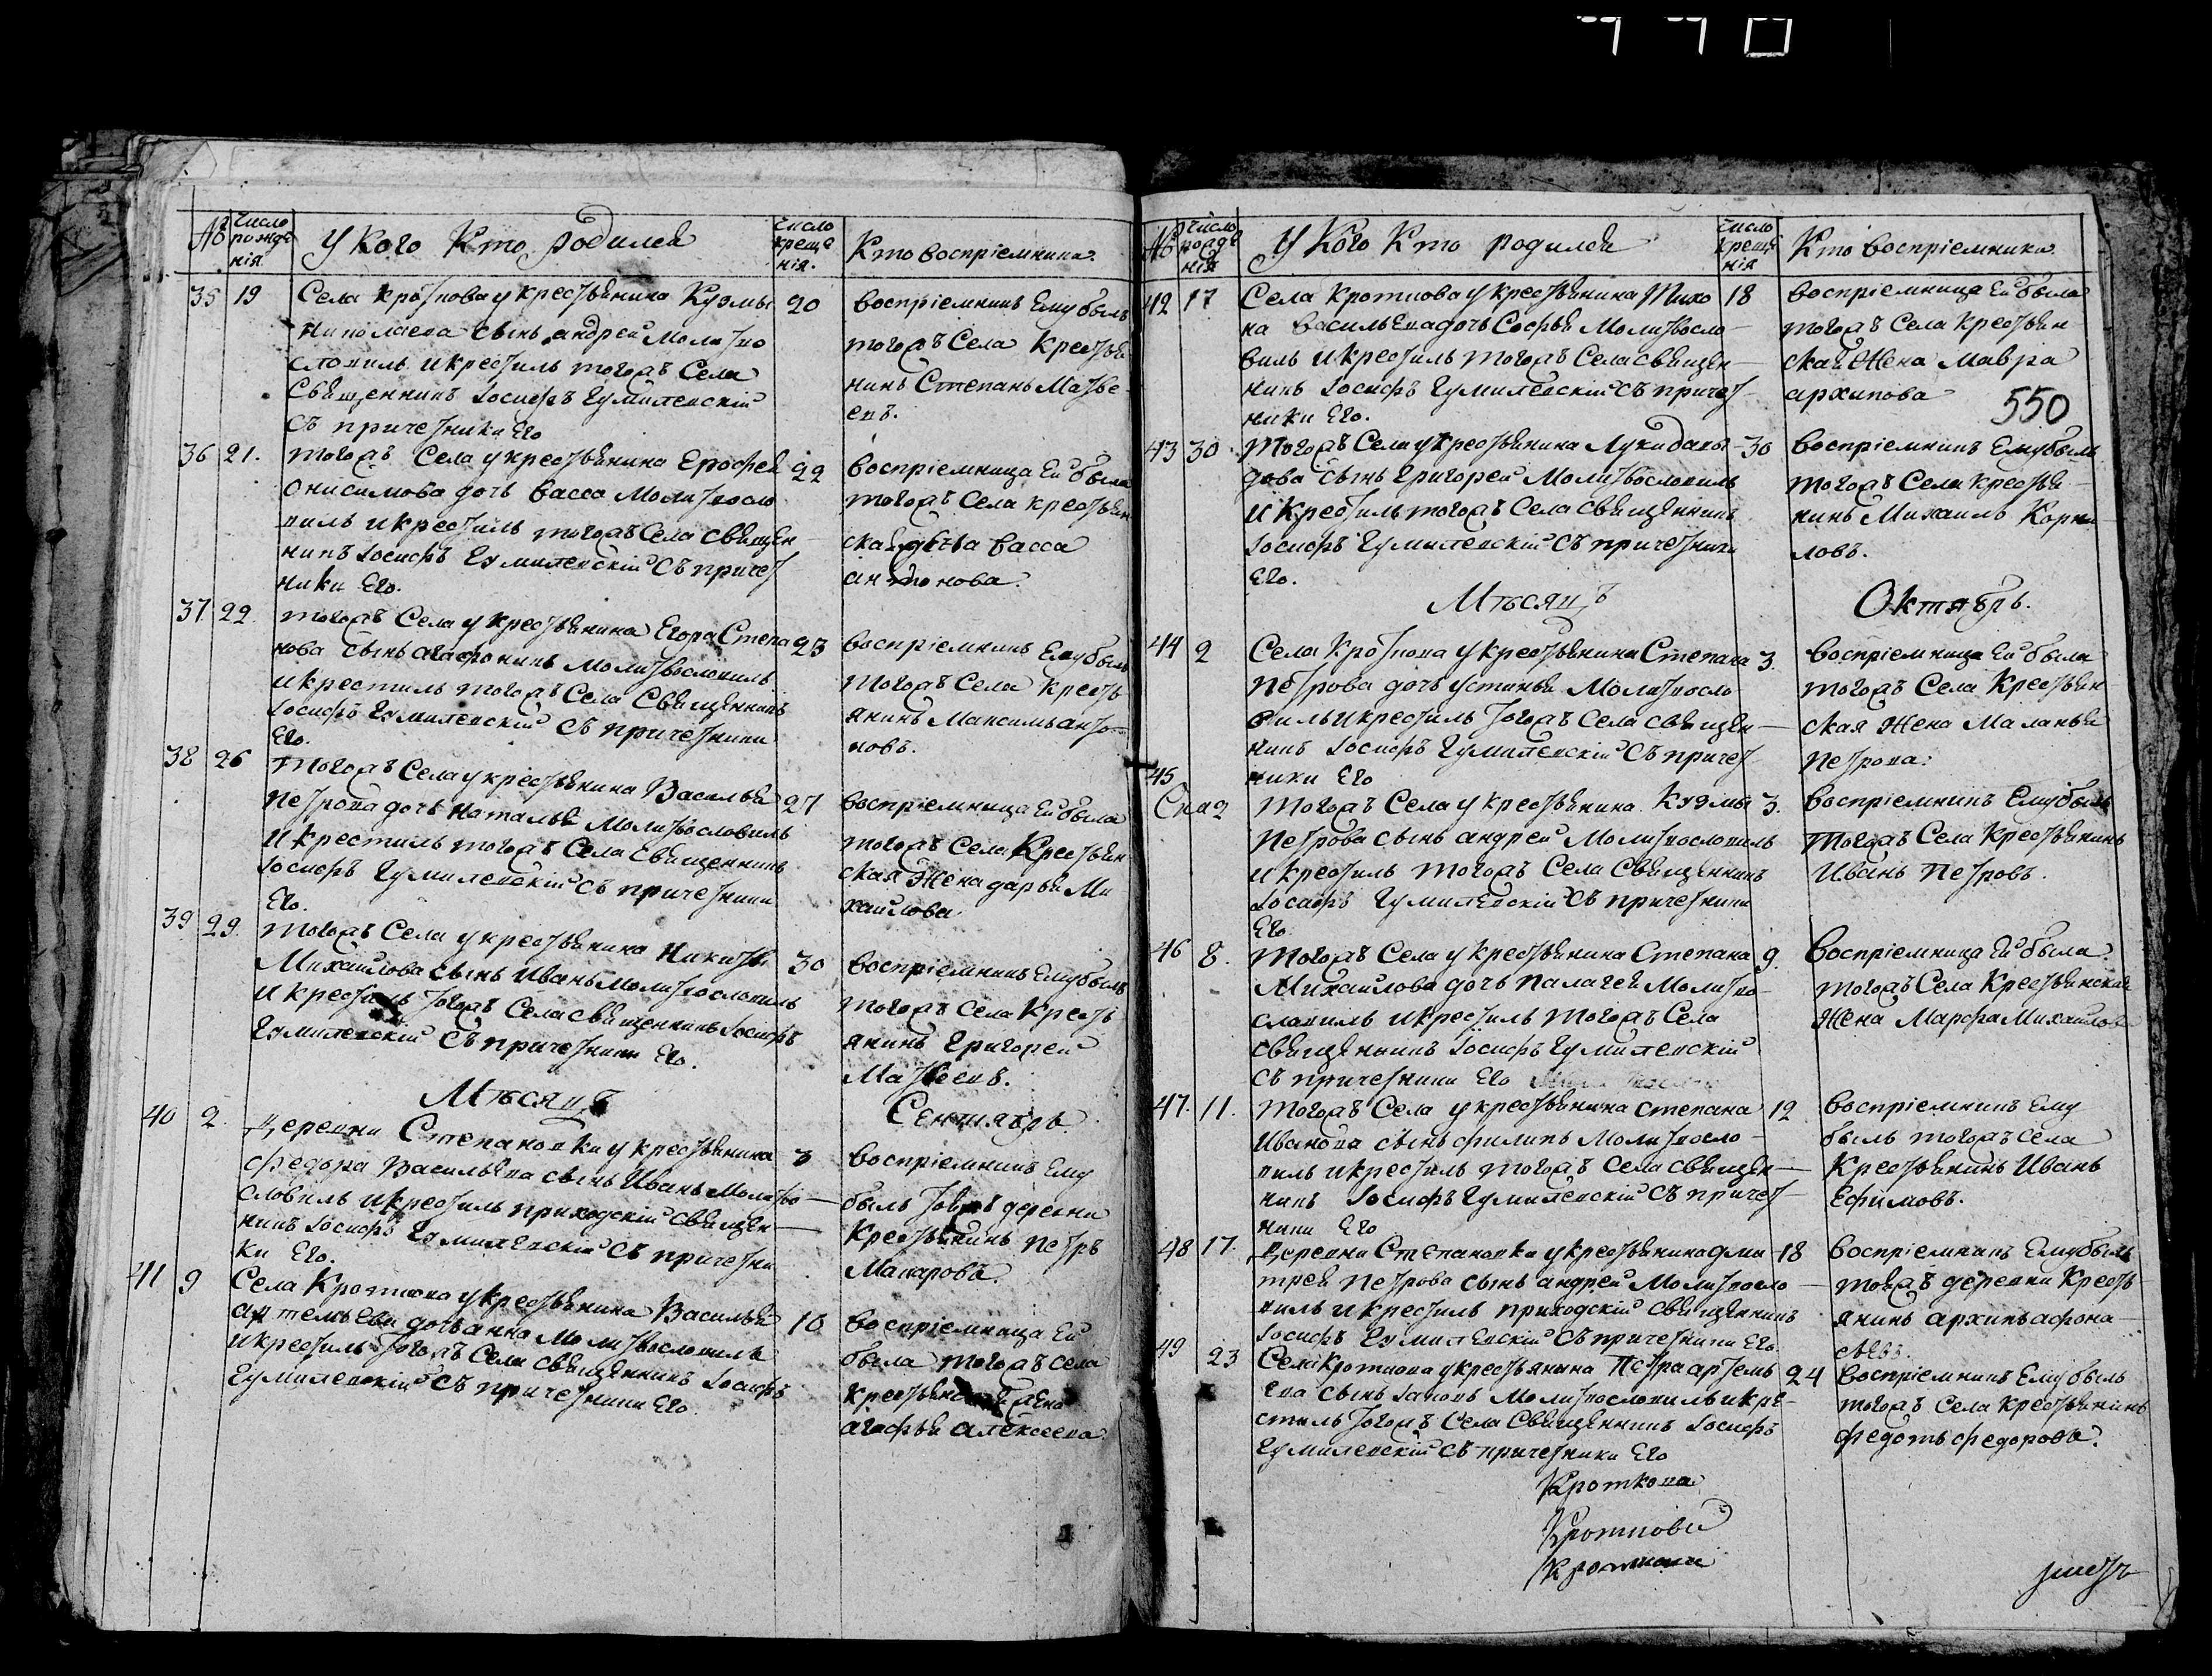 №
число рожде нія
У Кого Кто родился
число креще нія.
Кто воспріемники.
35 19
Села Кроткова у крестьянина Кузмы
20
николаева сынъ андрей Молитво
словилъ и крестилъ тогожъ Села
Священникъ Іосифъ Гумилевскій
съ причетники Его
воспріемникъ Ему былъ
тогожъ Села Крестья
нинъ Степанъ Матве
евъ.
36 21.
тогожъ Села у крестьянина Ерофея
22
Онисимова дочь васса Молитвосло
вилъ и крестилъ тогожъ Села священ
никъ Іосифъ Гумилевскій съ причет
ники Его.
воспріемница Ей была
тогожъ Села крестьян
ская девка васса
антонова.
37 22.
тогожъ Села у крестьянина Егора Степа
23
нова сынъ агафоникъ Молитвословилъ
и крестилъ тогожъ Села Священникъ
Іосифъ Гумилевскій съ причетники
Его.
воспріемникъ Ему былъ
тогожъ Села Кресть
янинъ Максимъ анто
новъ.
38 26
Тогожъ Села у крестьянина Василья
27
петрова дочь наталья Молитвословилъ
и крестилъ тогожъ Села Священникъ
Іосифъ Гумилевскій съ причетники
Его.
воспріемница Ей была
тогожъ Села Крестьян
ская Жена дарья Ми
хаилова.
39 29.
тогожъ Села у крестьянина Никиты
30
Михаилова сынъ Иванъ Молитвословилъ
и крестилъ тогожъ Села священникъ Іосифъ
Гумилевскій съ причетники Его.
воспріемникъ Ему былъ
тогожъ Села Кресть
янинъ григорей
Матвеевъ.
Мѣсяцъ
Сентябрь
40 2.
Деревни Степановки у крестьянина
3
федора Васильева сынъ Иванъ Молитво
словилъ и крестилъ приходскій священ
никъ Іосифъ Гумилевскій съ причетни
ки Его.
воспріемникъ Ему
былъ тояжъ деревни
Крестьянинъ петръ
Макаровъ.
41 9
Села Кроткова у крестьянина Василья
10
артемьева дочь анна Молитвословилъ
и крестилъ тогожъ Села священникъ Іосифъ
Гумилевскій съ причетники Его.
воспріемница Ей
была тогожъ села
крестьянская жена
агафья алексеева.
№
число рожде нія
У Кого Кто родился
число креще нія
Кто воспріемники.
42 17
Села Кроткова у крестьянина Тихо
18
на васильева дочь Софья Молитвосло
вилъ и крестилъ тогожъ Села священ
никъ Іосифъ Гумилевскій съ причет
ники Его.
воспріемница Ей была
тогожъ Села Крестьян
ская Жена Мавра
архипова
550
43 30
Тогожъ Села у крестьянина Луки давы
30
дова сынъ григорей Молитвословилъ
и Крестилъ тогожъ Села священникъ
Іосифъ Гумилевскій съ причетники
Его.
воспріемникъ Ему былъ
тогожъ Села крестья
нинъ Михаилъ Корни
ловъ.
Мѣсяцъ
Октябрь.
44 2
Села Кроткова у крестьянина Степана
3.
петрова дочь устинья Молитвосло
вилъ и крестилъ тогожъ Села священ
никъ Іосифъ Гумилевскій съ причет
ники Его
воспріемница Ей была
тогожъ Села Крестьян
ская Жена Маланья
петрова.
45
2
Тогожъ Села у крестьянина Кузмы
3.
петрова сынъ андрей Молитвословилъ
и крестилъ тогожъ Села Священникъ
Іосифъ Гумилевскій съ причетники
Его.
воспріемникъ Ему былъ
тогожъ Села Крестьянинъ
Иванъ петровъ.
46 8.
тогожъ Села у крестьянина Степана
9.
Михаилова дочь палагея Молитво
словилъ и крестилъ тогожъ Села
священникъ Іосифъ Гумилевскій
съ причетники Его
воспріемница Ей была
тогожъ Села Крестьянская
Жена Марфа Михаилова
47. 11.
тогожъ Села у крестьянина степана
12
Иванова сынъ филипъ Молитвосло
вилъ и крестилъ тогожъ Села священ
никъ Іосифъ Гумилевскій съ причет
ники Его
воспріемникъ Ему
былъ тогожъ села
Крестьянинъ Иванъ
Ефимовъ.
48 17.
Деревни Степановки у крестьянина дми
18
трея петрова сынъ андрей Молитвосло
вилъ и крестилъ приходскій священникъ
Іосифъ Гумилевскій съ причетники Его.
воспріемникъ Ему былъ
тояжъ деревни Кресть
янинъ архипъ афона
сьевъ.
49 23
Села Кроткова у крестьянина Петра артемь
24
ева сынъ Іаковъ Молитвословилъ и кре
стилъ тогожъ Села Священникъ Іосифъ
Гумилевскій съ причетники Его
воспріемникъ Ему былъ
тогожъ Села крестьянинъ
федотъ федоровъ.
Кроткова
Кроткова